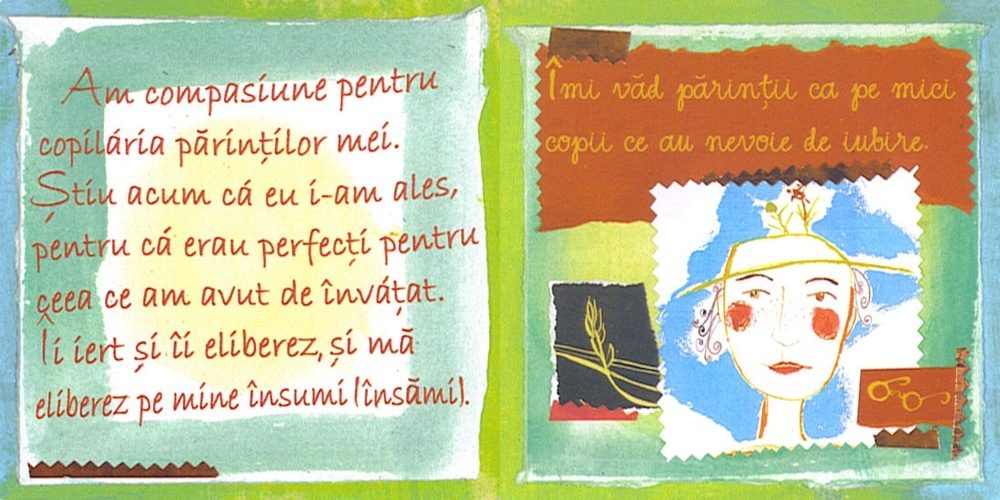 Am compasiune pentru
copilária părinților mei.
Știu acum cá eu i-am ales,
pentru cá erau perfecți pentru
ceea ce am avut de înváțat.
Îi iert și îi eliberez, și mă
eliberez pe mine însumi (însămi).
Îmi văd părinții ca pe mici
copii ce au nevoie de iubire.